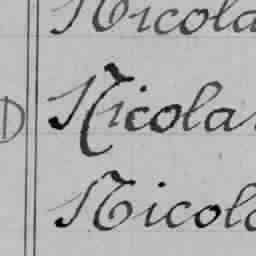 Nicola
D Nicola
Nicola